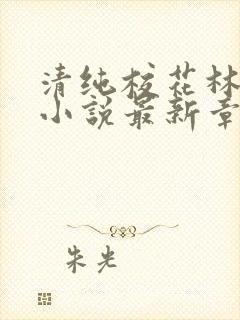 清纯校花林
小说最新章
朱光